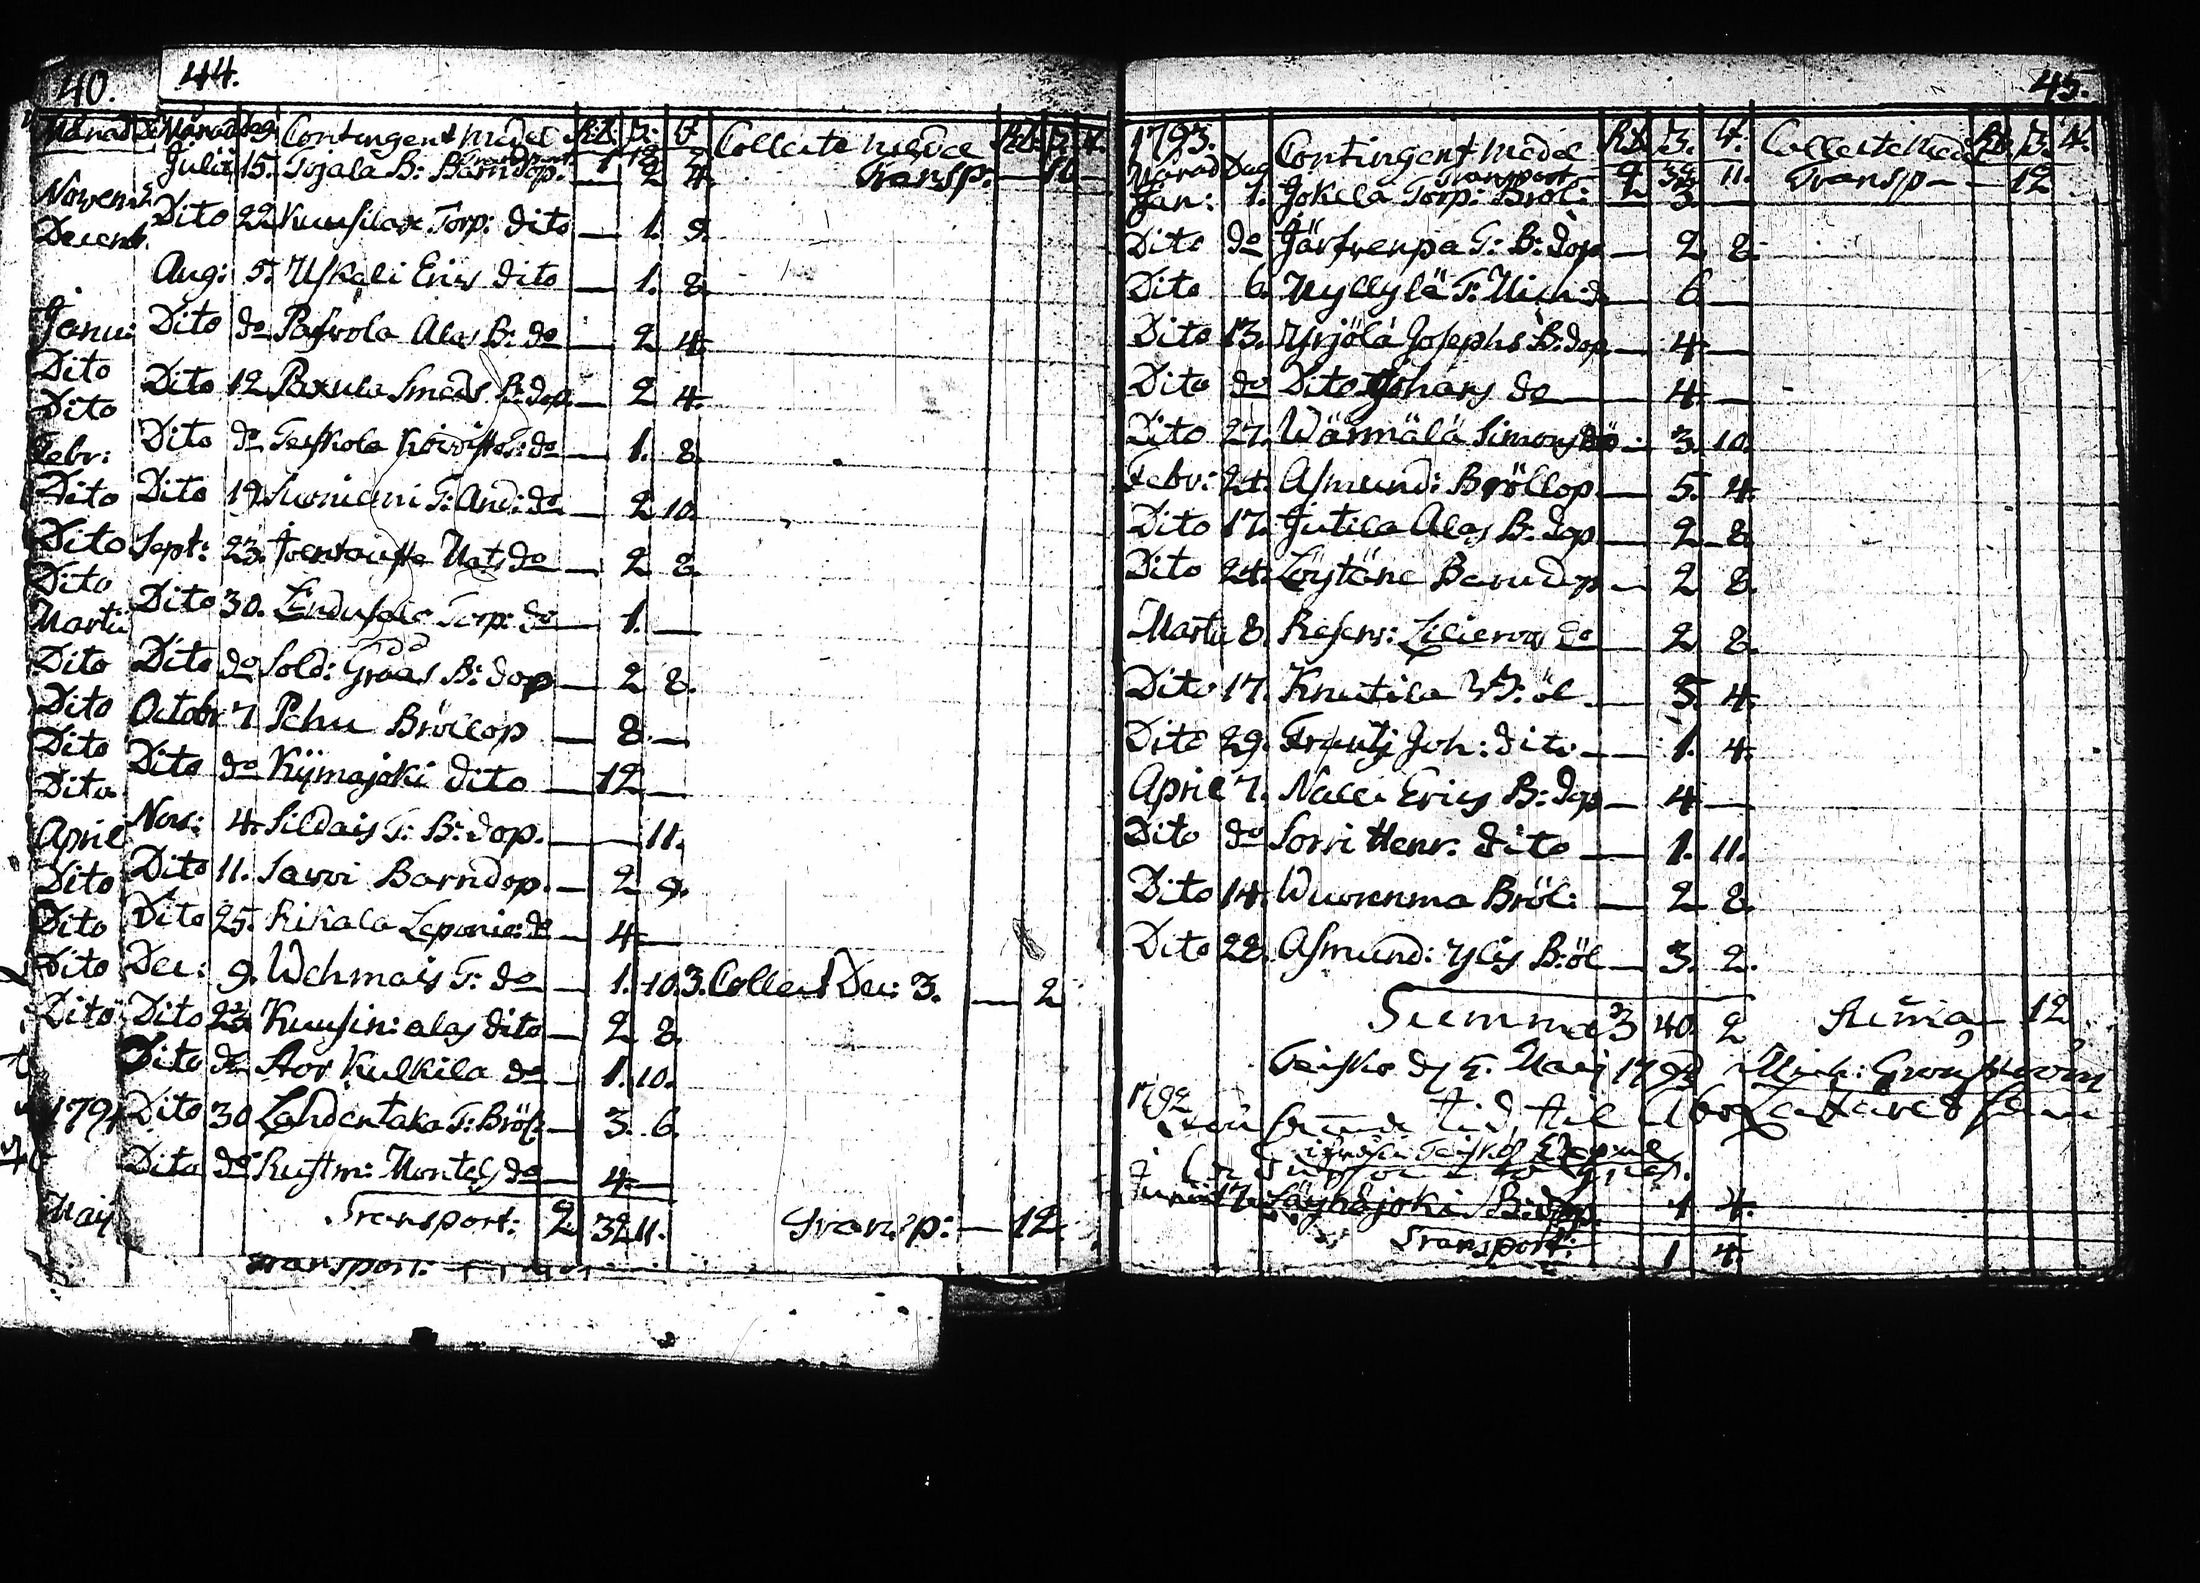 40.
44.
Månad Dag Contingent medel R:d. ß. d. Collecte medel R:d. ß. d.
Transport 1 18 2 Transp: — 10 —
Julii 15. Pojala B: Barndop. — 2 4.
Dito 22 Kuusilax Torp: dito — 1. 9.
Aug: 5. Uskali Erics dito — 1. 8.
Dito do Pafvola Alas B: do — 2 4.
Dito 12 Paxula Smeds B: dop. — 2 4.
Dito do Teiskola Koivisto T: do — 1. 8.
Dito 19. Suoniemi T: And: do — 2 10.
Sept: 23. Mats do — 2 8.
Dito 30. Torp: do — 1. —
Dito do Sold: Graas B: dop — 2 8.
Octobr 7 Pehu Bröllop — 8. —
Dito do Kijmajoki dito — 12 —
Nov: 4. Sildais T: B: dop. — — 11.
Dito 11. Savvi Barndop. — 2 9.
Dito 25. Kikala do — 4. —
Dec: 9. Wehmais T: do — 1. 10. 3. Collect Dec: 3. — 2
Dito 23 Kuusin: alas dito — 2 8.
Dito do Stor Kulkila do — 1. 10.
Dito 30 Lahdentaka T: Bröl: — 3. 6.
Dito do Rustm: do — 4. —
Transport: 2 32 11. Transp: — 12
Månad
Novemb.
Decemb.
Janu:
Dito
Dito
Febr:
Dito
Dito
Dito
Martii
Dito
Dito
Dito
Dito
April
Dito
Dito
Dito
Dito
1791
Maij
Transport:
45.
1793. Contingent medel Rd. ß. d. Collecte Medel Rd. ß. d.
Månad Dag Transport 2 32 11. Transp — — 12
Jan: 1. Jokela Torp: Bröl: — 3. —
Dito do Järfvenpä T: B: dop — 2 8.
Dito 6. Myllylä T: Mich: do — 6. —
Dito 13. Yrjölä Josephs B: dop — 4. —
Dito do Dito Johans do — 4. —
Dito 27. Wärmälä Simons do — 3. 10.
Febr: 24. Asmund: Bröllop — 5. 4.
Dito 17. Jutila Alas B: dop — 2 8.
Dito 24. Löytäne Barndop — 2 8.
Martii 8. Reserv: do — 2 8.
Dito 17. Knutila B: öl — 5. 4.
Dito 29. Frantz Joh: dito — 1. 4.
April 7. Nalli Erics B: dop — 4 —
Dito do Sorri Henr. dito — 1. 11.
Dito 14. Wuorenma Bröl: — 2 8.
Dito 28. Asmund: Ylis B: öl — 3. 2.
Summa 3 40. 2 Suma — 12
Teisko d: 5. Maij 1793 Mich:
1792
tid, til
Junii 17. B: dop. 1 4.
Transport: 1 4.